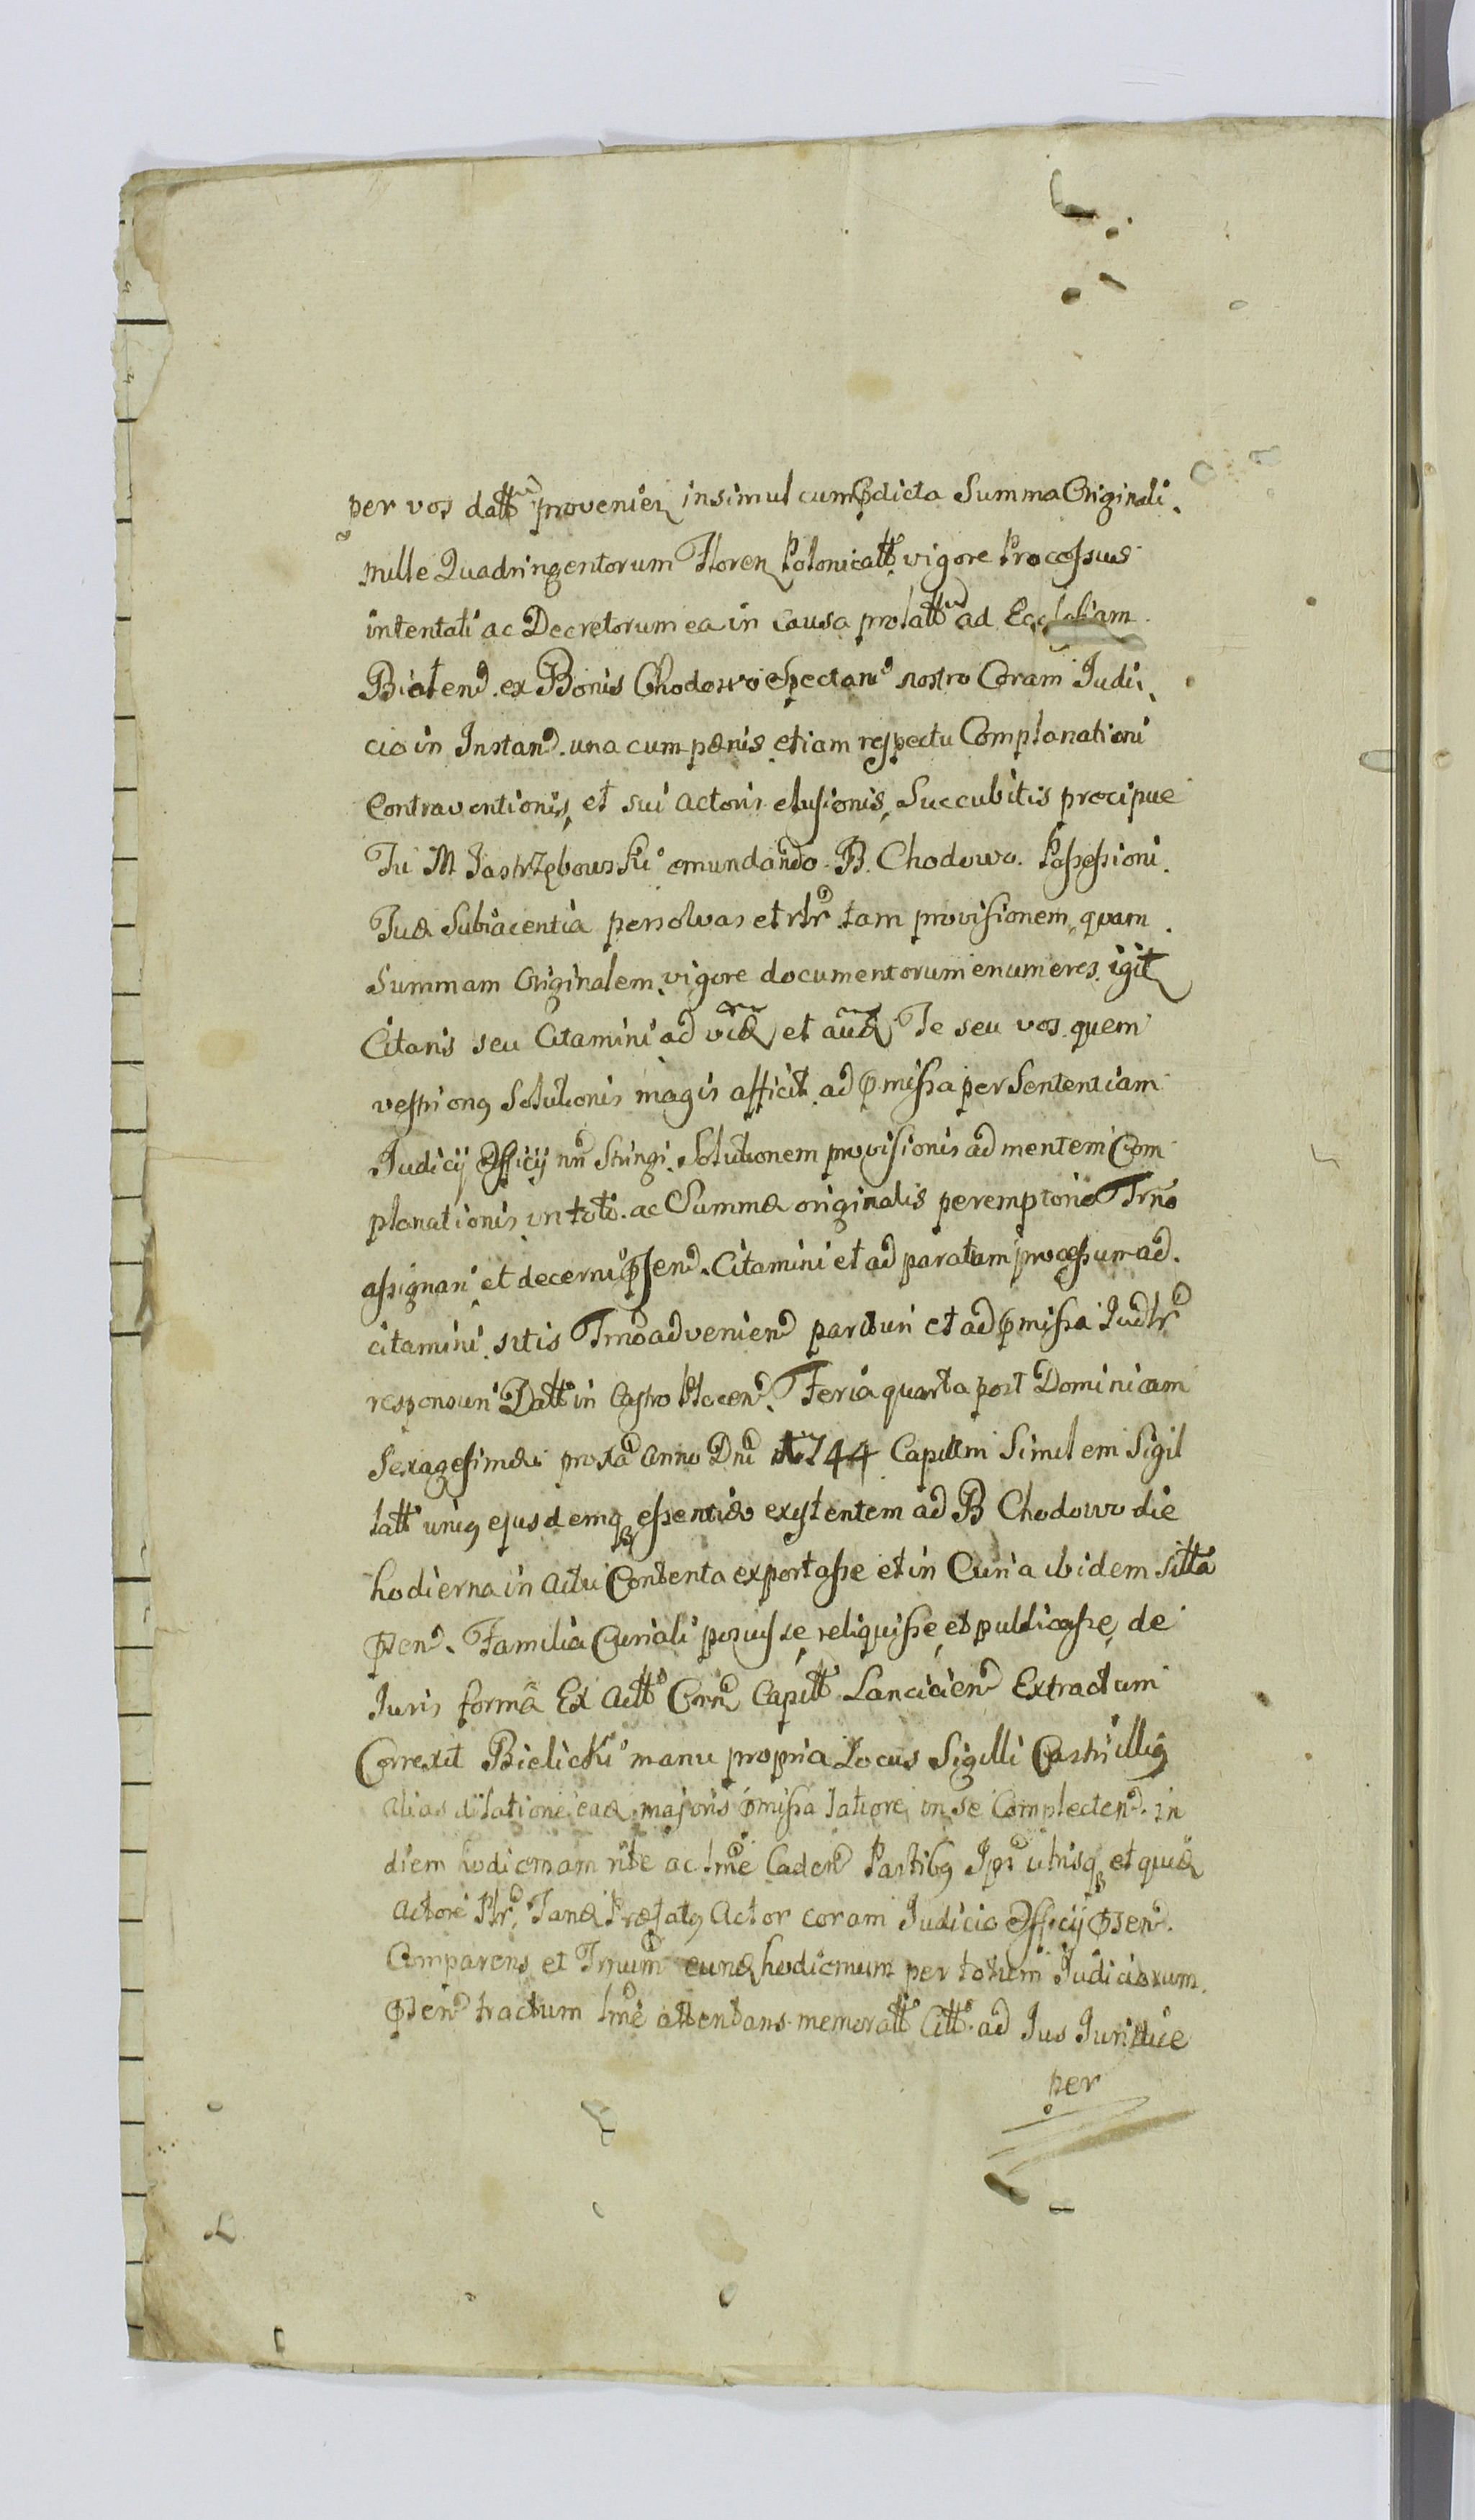 per vos datt provenien insimul cum pdicta Summa Originali
mille Quadringentorum Floren Polonicatt vigore Processus
intentati ac Decretorum ea in Causa prolatt ad Ecclesiam
Bialen ex Bonis Chodowo spectani nostro Coram Judi
cio in Instan una cum pænis etiam respectu Complanationi
Contraventionis, et sui Actoris elusionis, Succubitis precipue
Tu M Jastrzębowski emundando B. Chodowo Possessioni
Tuæ Subiacentia persolvas et rlr tam provisionem, quam
Summam Originalem vigore documentorum enumeres igit
Citaris seu Citamini ad vid et aud Te seu vos quem
vestri onq Solutionis magis afficit ad pmissa per Sententiam
Judicij Officij nri Stringi Solutionem provisionis ad mentem Com
planationis in toto ac Summæ originalis peremptorie Trno
assignari et decerni psen Citamini et ad paratam processum ad
citamini sitis Trmo advenien parituri et ad pmissa Judlr
responsuri Datt in Castro Plocen Feria quarta post Dominicam
Sexagesimæ proxa Anno Dni 1744 Capitlm Similem Sigil
latt uniq ejusdemq essentiæ existentem ad B Chodowo die
hodierna in Actu Contenta exportasse et in Curia ibidem sitta
psen Familia Curiali posuisse, reliquisse, et publicasse, de
Juris forma Ex Actt Crn Capitt Lancicien Extractum
Correxit Bielicki manu propria Locus Sigilli Castri illiq
alias dilatione ead majoris pmissa latiore in se Complecten in
diem hodiernam rite ac trme Caden Partibq Ipr utrisq et quid
Actore Ptr, Tand Præfatq Actor coram Judicio Officij psen
Comparens et Trnum eund hodiernum per totum Judiciorum
psen tractum trme attentans memoratt Citt ad Jus Jurisque
per